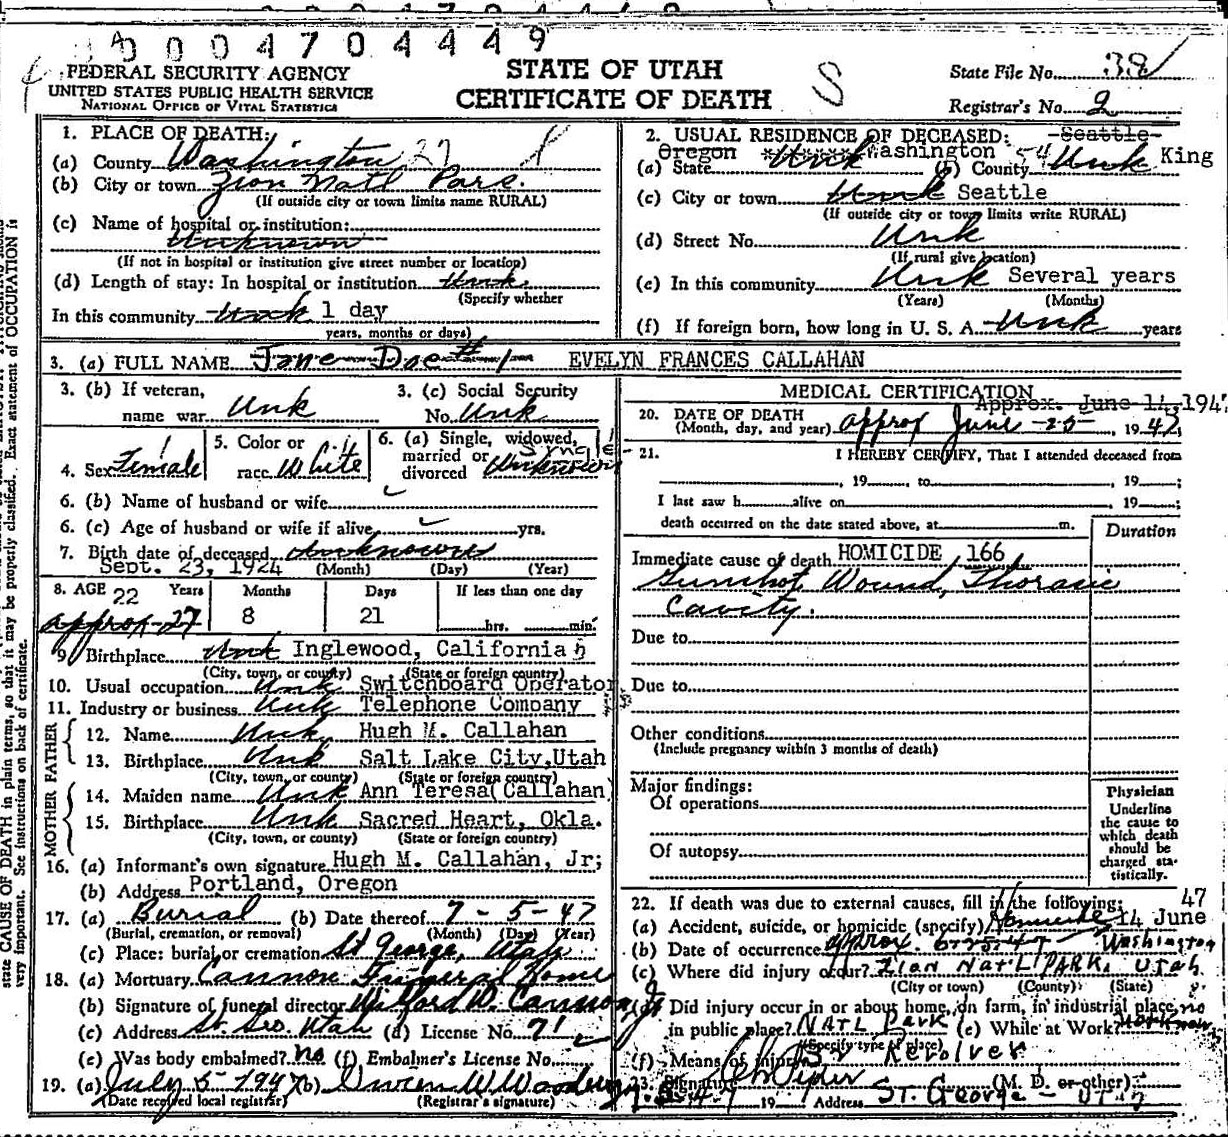 0004704449
FEDERAL SECURITY AGENCY
UNITED STATES PUBLIC HEALTH SERVICE
NATIONAL OFFICE OF VITAL STATISTICS
STATE OF UTAH
CERTIFICATE OF DEATH
S
State File No. 38
Registrar's No. 2
1. PLACE OF DEATH:
(a) County Washington 27
(b) City or town Zion Natl Park.
(If outside city or town limits name RURAL)
(c) Name of hospital or institution:
Unknown
(If not in hospital or institution give street number or location)
(d) Length of stay: In hospital or institution Unk.
(Specify whether
In this community Unk 1 day
years, months or days)
2. USUAL RESIDENCE OF DECEASED: Seattle
Oregon Washington 54 King
(a) State Unk (b) County Unk
(c) City or town Unk Seattle
(If outside city or town limits write RURAL)
(d) Street No. Unk
(If rural give location)
(e) In this community Unk Several years
(Years) (Months)
(f) If foreign born, how long in U. S. A. Unk years
3. (a) FULL NAME Jane Doe #1 EVELYN FRANCES CALLAHAN
3. (b) If veteran,
name war Unk
3. (c) Social Security
No. Unk
4. Sex Female
5. Color or
race White
6. (a) Single, widowed,
married or Single
divorced Unknown
6. (b) Name of husband or wife
6. (c) Age of husband or wife if alive yrs.
7. Birth date of deceased Unknown
Sept. 23, 1924 (Month) (Day) (Year)
8. AGE 22 Years
approx 27
Months
8
Days
21
If less than one day
hrs. min.
9. Birthplace Unk Inglewood, California
(City, town, or county) (State or foreign country)
10. Usual occupation Unk Switchboard Operator
11. Industry or business Unk Telephone Company
FATHER
12. Name Unk Hugh M. Callahan
13. Birthplace Unk Salt Lake City, Utah
(City, town, or county) (State or foreign country)
MOTHER
14. Maiden name Unk Ann Teresa(Callahan)
15. Birthplace Unk Sacred Heart, Okla.
(City, town, or county) (State or foreign country)
16. (a) Informant's own signature Hugh M. Callahan, Jr;
(b) Address Portland, Oregon
17. (a) Burial (b) Date thereof 7 - 5 - 47
(Burial, cremation, or removal) (Month) (Day) (Year)
(c) Place: burial or cremation St George, Utah
18. (a) Mortuary Cannon Funeral Home
(b) Signature of funeral director Wilford W. Cannon
(c) Address St. Geo. Utah (d) License No. 71
(e) Was body embalmed? no (f) Embalmer's License No.
19. (a) July 5 1947 (b)
(Date received local registrar) (Registrar's signature)
MEDICAL CERTIFICATION
Approx. June 14, 1947
20. DATE OF DEATH
(Month, day, and year) approx June 25, 1947
21. I HEREBY CERTIFY, That I attended deceased from
, 19 , to , 19 ;
I last saw h alive on , 19 ;
death occurred on the date stated above, at m.
Duration
Immediate cause of death HOMICIDE 166
Gunshot Wound, Thorasic
Cavity.
Due to
Due to
Other conditions
(Include pregnancy within 3 months of death)
Major findings:
Of operations
Of autopsy
Physician
Underline
the cause to
which death
should be
charged sta-
tistically.
22. If death was due to external causes, fill in the following: 47
(a) Accident, suicide, or homicide (specify) Homicide 14 June
(b) Date of occurrence approx. 6-25-47 Washington
(c) Where did injury occur? ZION NAT'L PARK. UTAH
(City or town) (County) (State)
(d) Did injury occur in or about home, on farm, in industrial place, no
in public place? NATL Park (e) While at Work? Unknown
(Specify type of place)
(f) Means of injury Revolver
23. Signature (M. D. or other)
19 Address ST. George - UTAH
state CAUSE OF DEATH in plain terms, so that it may be properly classified. Exact statement of OCCUPATION is
very important. See instructions on back of certificate.